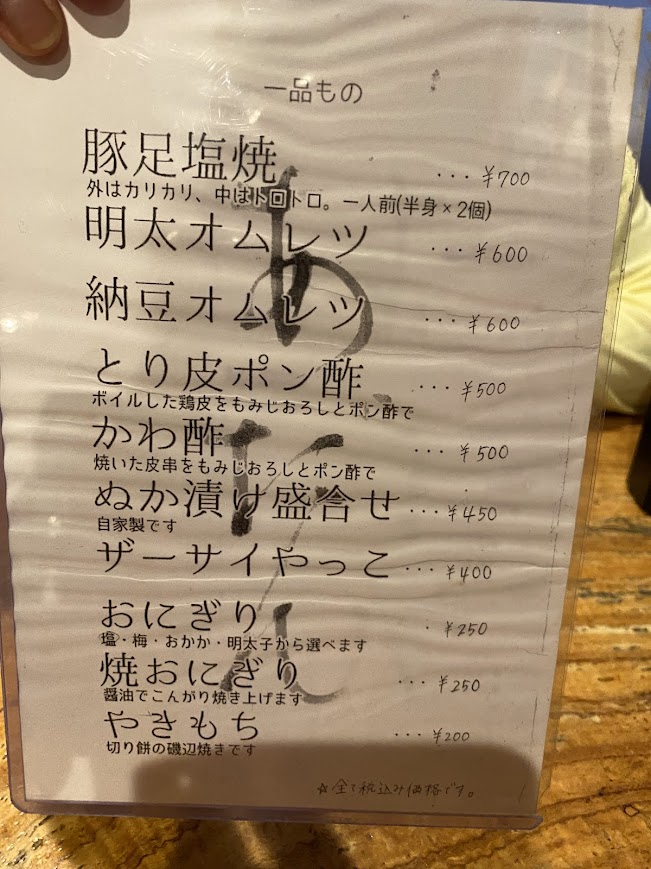 一品もの
豚足塩焼 ・・・¥700
外はカリカリ、中はトロトロ。一人前(半身×2個)
明太オムレツ ・・・¥600
納豆オムレツ ・・・¥600
とり皮ポン酢 ・・・¥500
ボイルした鶏皮をもみじおろしとポン酢で
かわ酢 ・・・¥500
焼いた皮串をもみじおろしとポン酢で
ぬか漬け盛合せ ・・・¥450
自家製です
ザーサイやっこ ・・・¥400
おにぎり ・¥250
塩・梅・おかか・明太子から選べます
焼おにぎり ・・・¥250
醤油でこんがり焼き上げます
やきもち ・・・¥200
切り餅の磯辺焼きです
☆全て税込み価格です。